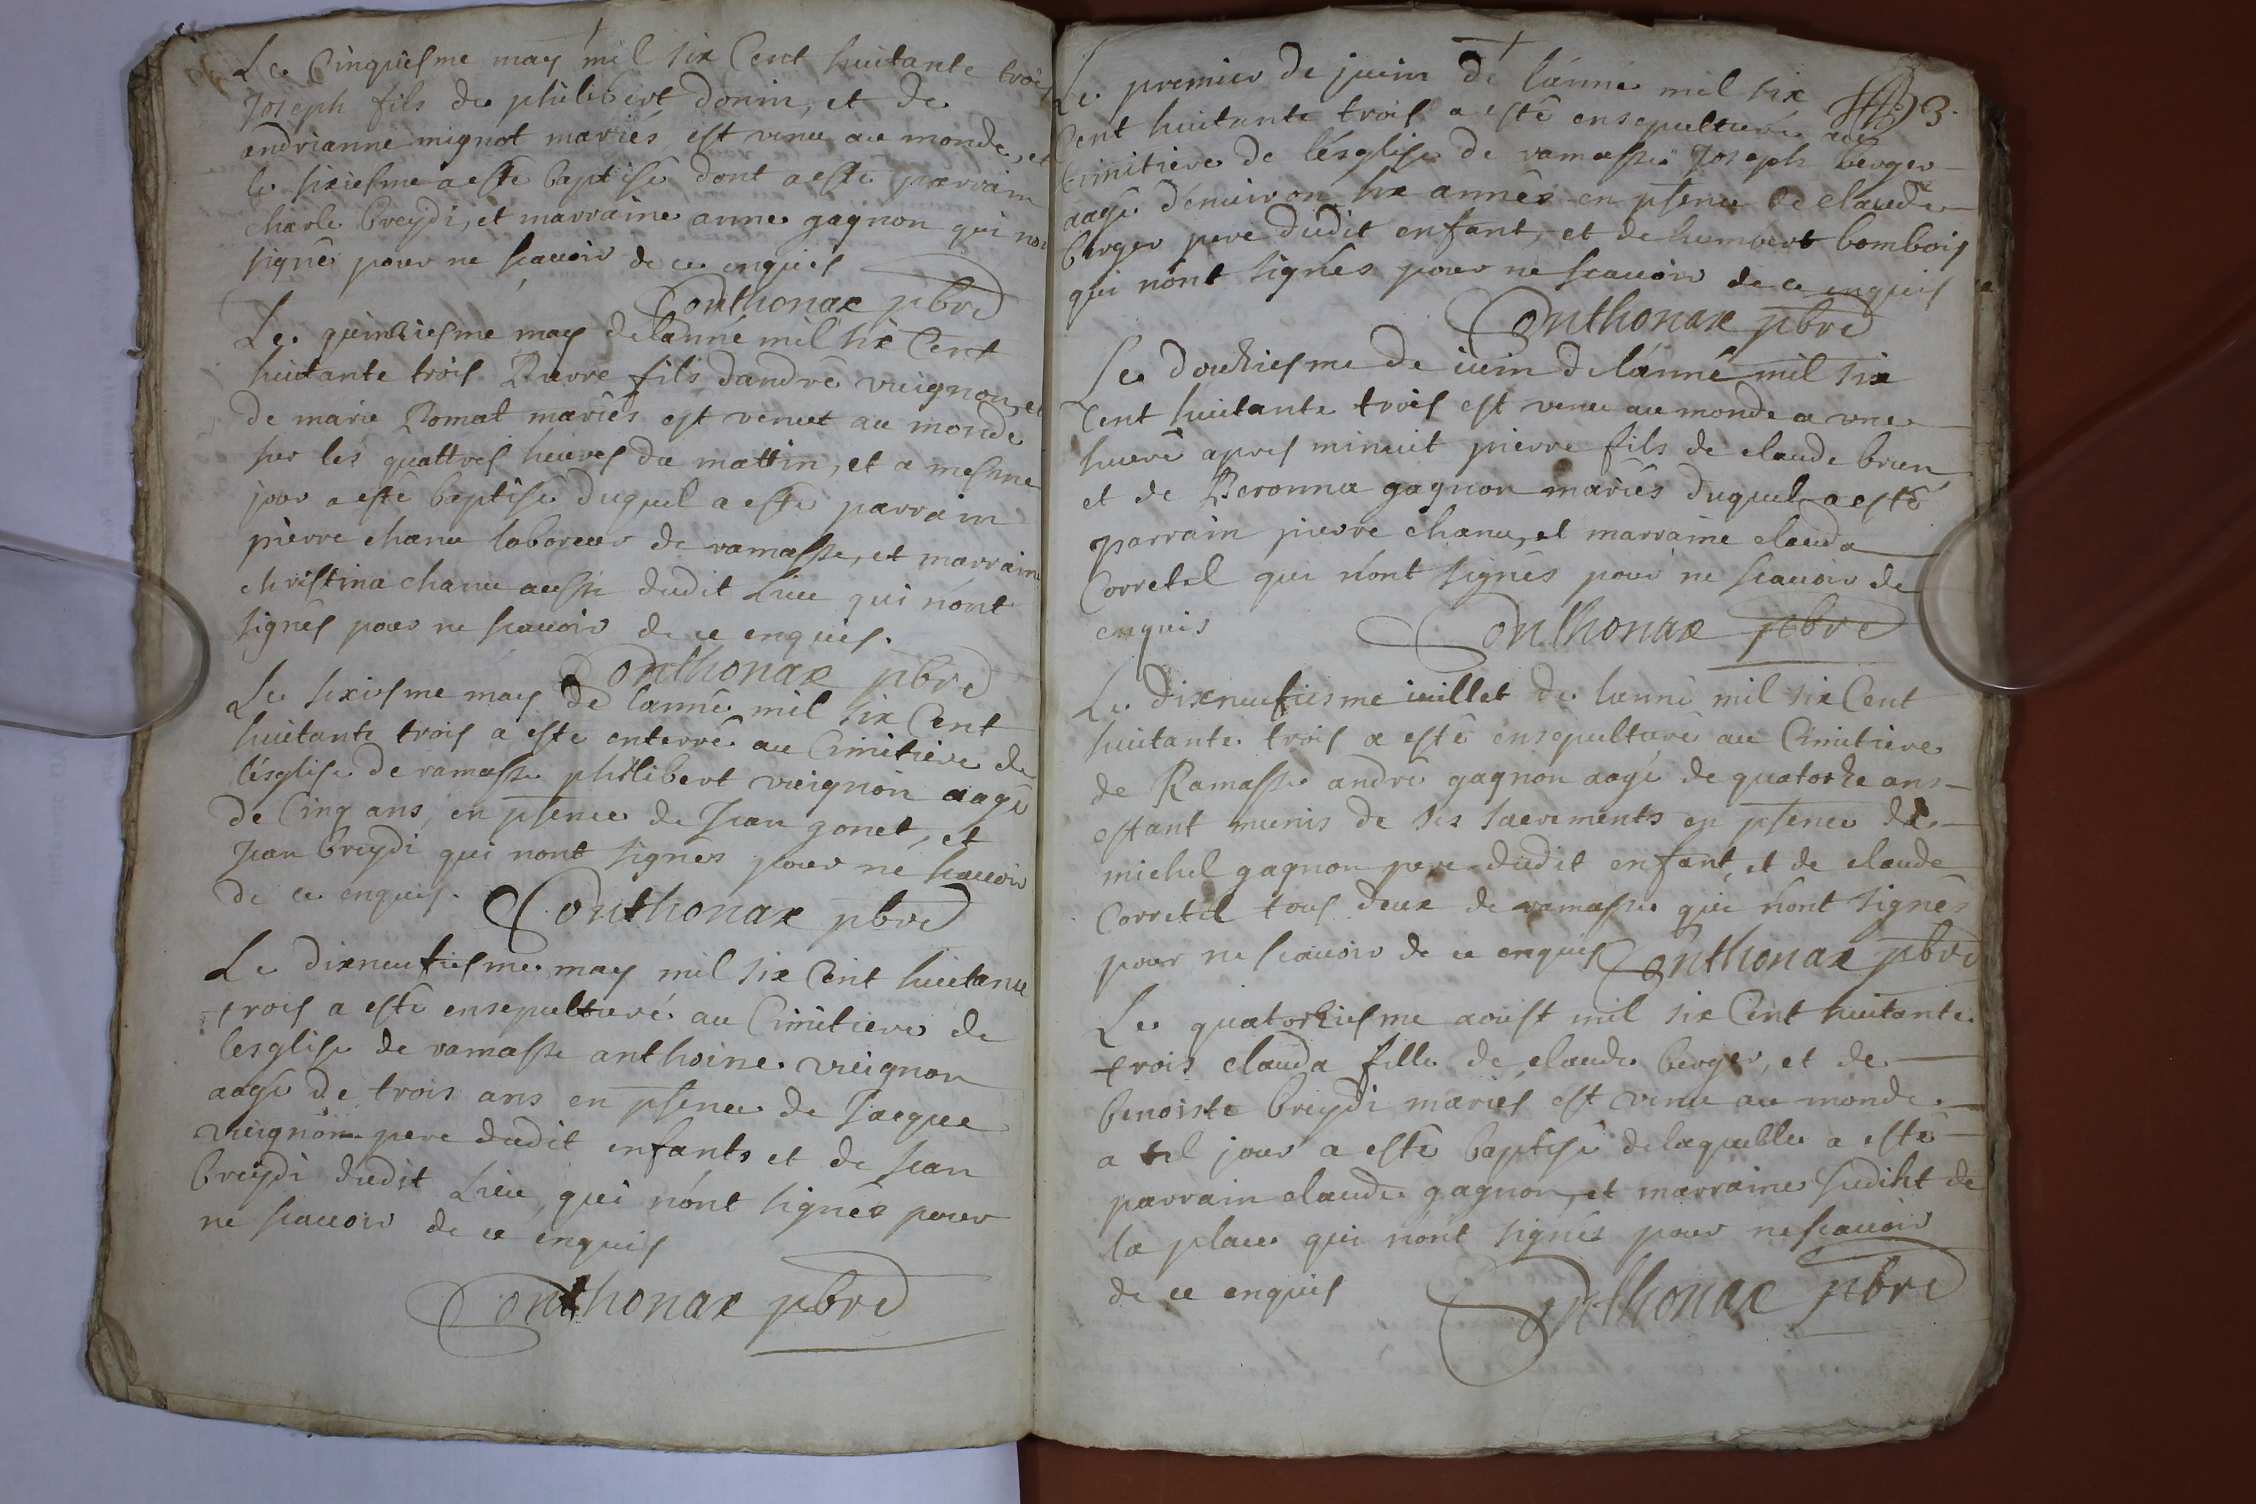 Le Cinquiesme may mil six Cent huitante trois
Joseph fils de philibert donin, et de
andrianne mignot mariés est venu au monde, et
le sixiesme a esté baptisé dont a esté parrain
charle breydi, et marraine anne gagnon qui nont
signés pour ne scauoir de ce enquis
Conthonax pbre
Le quinziesme may de lanné mil six Cent
huitante trois Pierre fils dandré vuignon, et
de marie Romat mariés est venut au monde
sur les quattres heures du mattin, et a mesme
jour a esté baptisé duquel a esté parrain
pierre chanu laboreur de ramasse, et marraine
christina chanu aussi dudit Lieu qui nónt
signés pour ne scauoir de ce enquis.
Conthonax pbre
Le sixiesme may de lanné mil six Cent
huitante trois a esté enterré au Cimitiere de
lésglise de ramasse philibert vuignon aagé
de Cinq ans, en psence de Jean gonet, et
Jean breydi qui nont signés pour ne scauoir
de ce enquis. Conthonax pbre
Le dixneufiesme may mil six Cent huitante
trois a esté ensepulturé au Cimitiere de
lesglise de ramasse anthoine vuignon
aagé de trois ans en psence de Jacque
vuignon pere dudit enfants et de Jean
breydi dudit Lieu, qui nónt signés pour
ne scauoir de ce enquis
Conthonax pbre
3.
Le premier de juin de lánné mil six
Cent huitante trois a esté ensepulturé au
Cimitiere de lésglise de ramasse Joseph berger
aagé dénuiron six annés en psence de claude
berger pere dudit enfant, et de humbert bombois
qui nónt signés pour ne scauoir de ce enquis
Conthonax pbre
Le douziesme de iuin de lánné mil six
Cent huitante trois est venu au monde a vne
heure apres minuit pierre fils de claude brun
et de Peronna gagnon mariés duquel a esté
parrain pierre chanu, et marraine clauda
Corretel qui nónt signés pour ne scauoir de
enquis Conthonax pbre
Le dixneufiesme iuillet de lanné mil six Cent
huitante trois a esté ensepulturé au Cimitiere
de Ramasse andré gagnon aagé de quatorze ans
estant munis de ses sacrements en psence de
michel gagnon pere dudit enfant, et de claude
Corretel tous deux de ramasse qui nont signés
pour ne scauoir de ce enquis Conthonax pbre
Le quatorziesme aoust mil six Cent huitante
trois clauda fille de claude berger, et de
benoiste breydi mariés est venu au monde
a tel jour a esté baptisé de laquelle a esté
parrain claude gagnon, et marraine Judiht de
la place qui nónt signés pour ne scauoir
de ce enquis Conthonax pbre